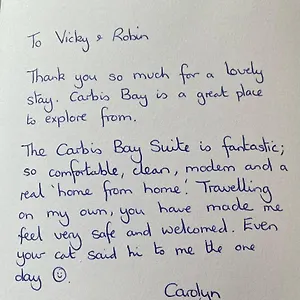 To Vicky & Robin
Thank you so much for a lovely
stay. Carbis Bay is a great place
to explore from.
The Carbis Bay Suite is fantastic;
so comfortable, clean, modern and a
real 'home from home'. Travelling
on my own, you have made me
feel very safe and welcomed. Even
your cat said hi to me the one
day ☺.
Carolyn